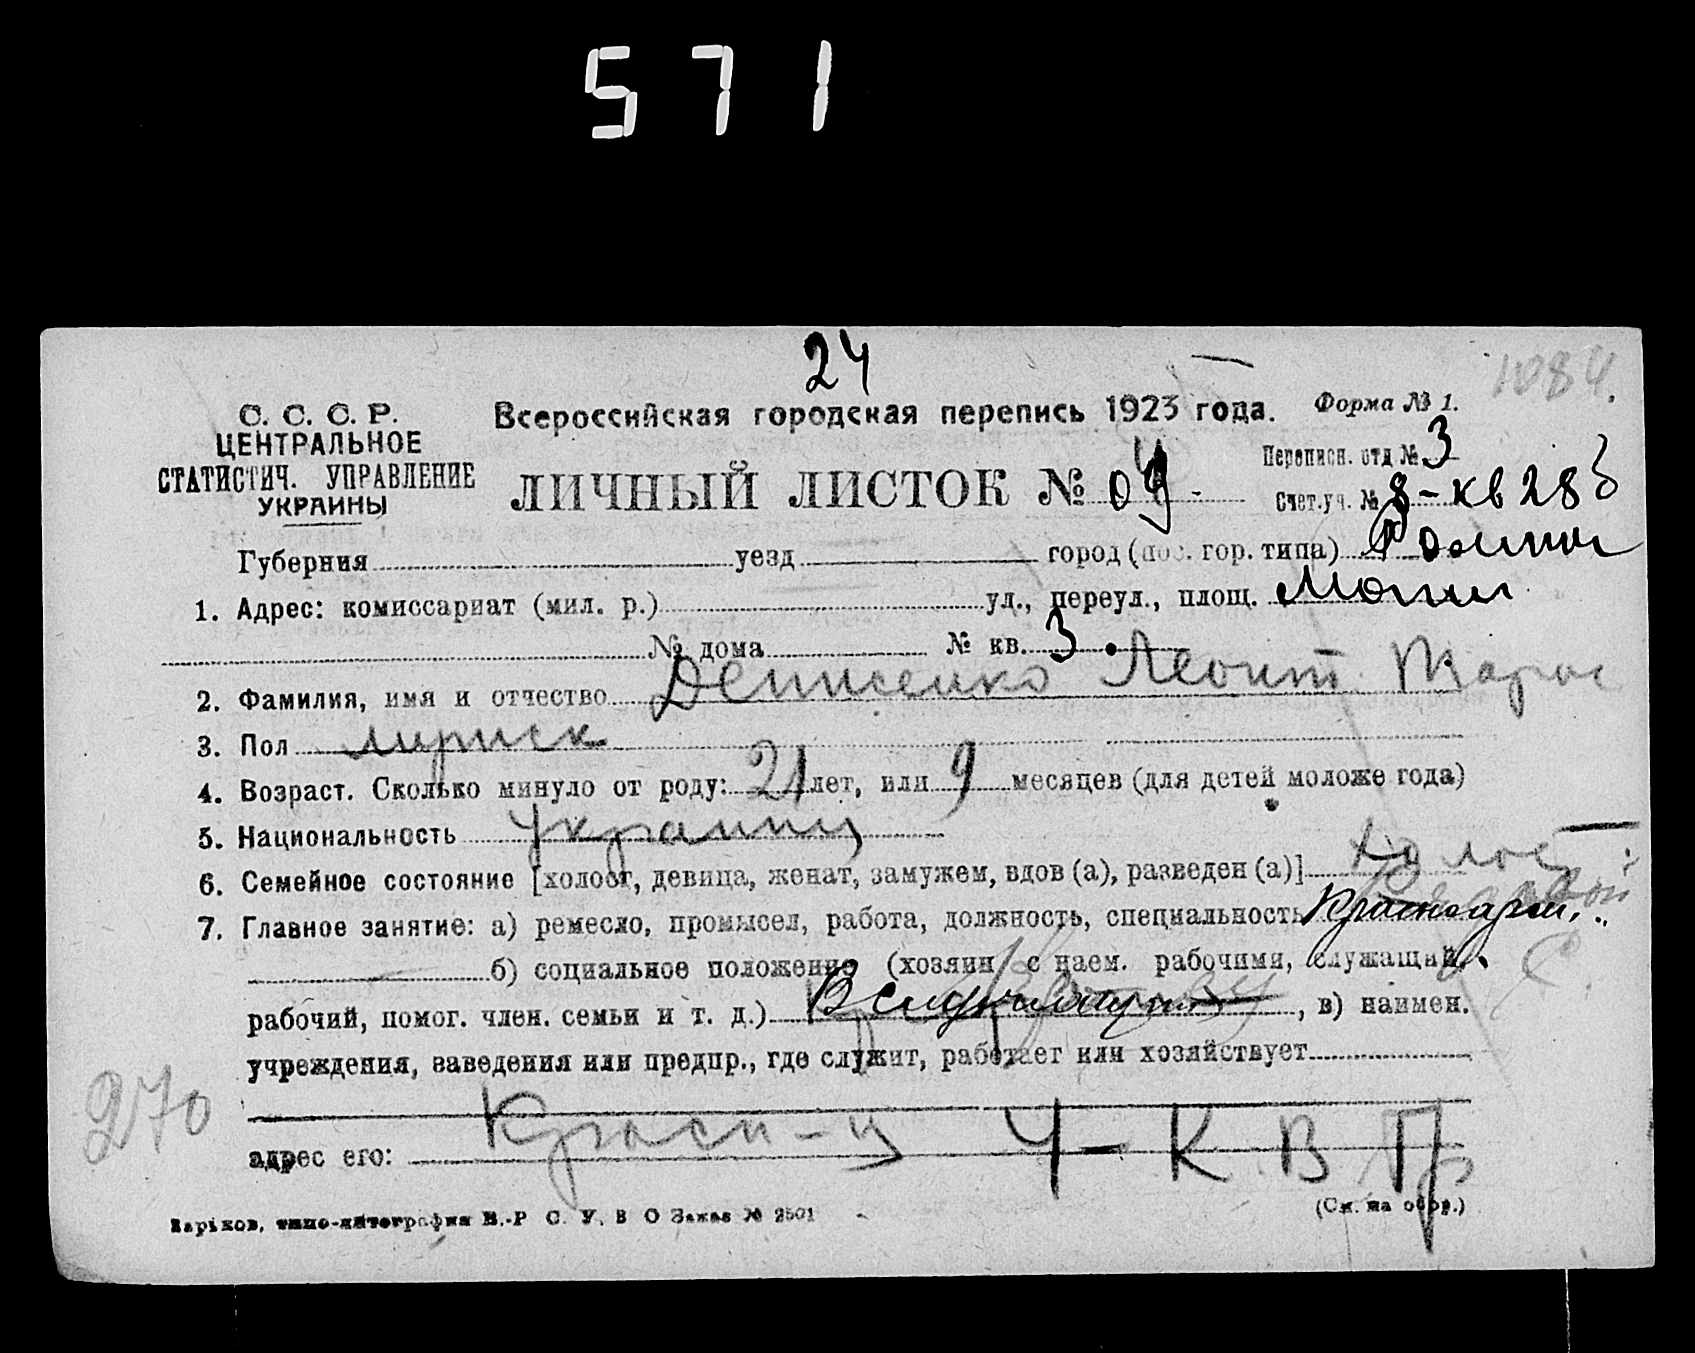 571
24
1084.
С. С. С. Р.
ЦЕНТРАЛЬНОЕ
СТАТИСТИЧ. УПРАВЛЕНИЕ
УКРАИНЫ
Всероссийская городская перепись 1923 года.
Форма № 1.
ЛИЧНЫЙ ЛИСТОК №
Переписн. отд № 3
Счет. уч. № 8 - кв 28
Губерния уезд город (пос. гор. типа)
1. Адрес: комиссариат (мил. р.) ул., переул., площ.
№ дома № кв. 3.
2. Фамилия, имя и отчество Денисенко Леонт. Тарас
3. Пол
4. Возраст. Сколько минуло от роду: 21 лет, или 9 месяцев (для детей моложе года)
5. Национальность украинец
6. Семейное состояние [холост, девица, женат, замужем, вдов (а), разведен (а)] холост
7. Главное занятие: а) ремесло, промысел, работа, должность, специальность Красноарм.
б) социальное положение (хозяин с наем. рабочими, служащий,
рабочий, помог. член. семьи и т. д.) , в) наимен.
учреждения, заведения или предпр., где служит, работает или хозяйствует
270
адрес его: Красн-ц
(См. на обор.)
Харіков, типо-литография В.-Р С. У. В О Заказ № 2501